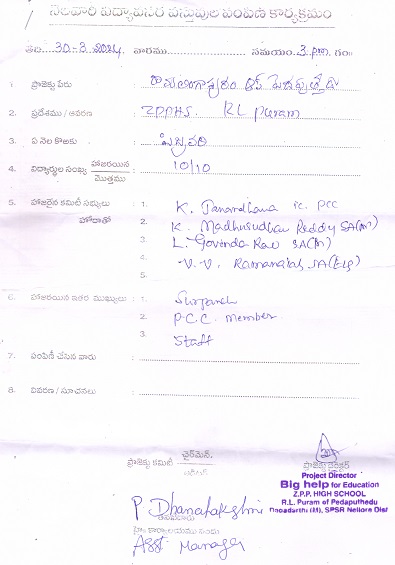 నెలవారి విద్యావసర వస్తువుల పంపిణి కార్యక్రమం
తేది 30-3-2024 వారము సమయం 3 pm గం
1. ప్రాజెక్టు పేరు
2. ప్రదేశము / ఆవరణ : ZPPHS. RL Puram
3. ఏ నెల కొఱకు : ఫిబ్రవరి
4. విద్యార్థుల సంఖ్య హాజరయిన / మొత్తము : 10/10
5. హాజరైన కమిటీ సభ్యులు : 1. K. Janardhana PCC
హోదాతో 2. K. Madhusudhan Reddy SA(M)
3. L. Govinda Rao SA(M)
4. V.V. Ramanaiah SA(Eng)
5.
6. హాజరయిన ఇతర ముఖ్యులు : 1. Surpanch
2. P.C.C. member
3. Staff
7. పంపిణీ చేసిన వారు :
8. వివరణ / సూచనలు :
ప్రాజెక్టు కమిటీ ఛైర్మెన్
ప్రాజెక్టు డైరెక్టర్
Project Director
Big help for Education
Z.P.P. HIGH SCHOOL
R.L. Puram of Pedaputhedu
Dagadarthi (M), SPSR Nellore Dist
P Dhanalakshmi
Asst Manager